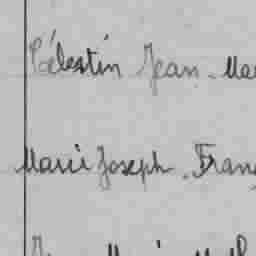 Célestin Jean. Ma
Marie Joseph. Fran